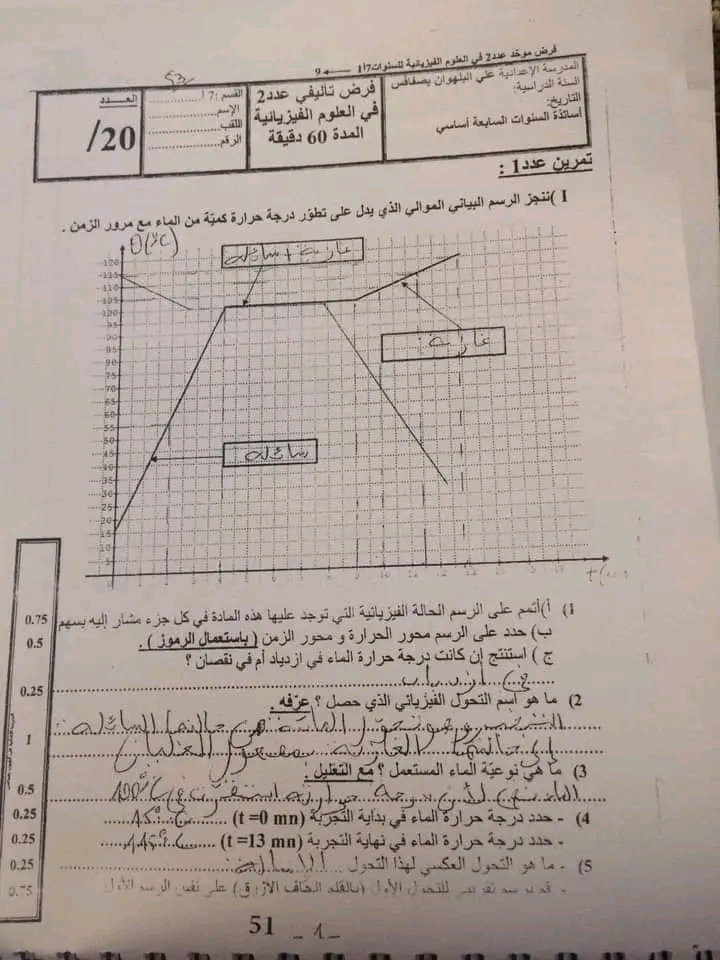 فرض موحد عدد2 في العلوم الفيزيائية للسنوات 7أ1 ⟵ 9
المدرسة الإعدادية علي البلهوان بصفاقس
السنة الدراسية:
التاريخ:
أساتذة السنوات السابعة أساسي
فرض تأليفي عدد2
في العلوم الفيزيائية
المدة 60 دقيقة
القسم :7 أ
الإسم
اللقب
الرقم
العدد
/20
تمرين عدد1 :
I )ننجز الرسم البياني الموالي الذي يدل على تطوّر درجة حرارة كميّة من الماء مع مرور الزمن .
θ(°C)
سائلة + غازية
غازية
سائلة
120
115
110
105
100
95
90
85
80
75
70
65
60
55
50
45
40
35
30
25
20
15
10
5
0
1) أ)أتمم على الرسم الحالة الفيزيائية التي توجد عليها هذه المادة في كل جزء مشار إليه بسهم
0.75
ب) حدد على الرسم محور الحرارة و محور الزمن ( باستعمال الرموز ) .
0.5
ج ) استنتج إن كانت درجة حرارة الماء في ازدياد أم في نقصان ؟
في ازدياد
0.25
2) ما هو اسم التحول الفيزيائي الذي حصل ؟ عرّفه .
التبخر وهو تحول المادة من حالتها السائلة
إلى حالتها الغازية بمفعول الغليان
1
3) ما هي نوعيّة الماء المستعمل ؟ مع التعليل :
الماء نقي لأن درجة حرارته استقرت في 100°C
0.5
4) - حدد درجة حرارة الماء في بداية التجربة (t =0 mn) 15°C
0.25
- حدد درجة حرارة الماء في نهاية التجربة (t =13 mn)
0.25
5) - ما هو التحول العكسي لهذا التحول الإسالة
0.25
على نفس الرسم الأول
0.75
51
- 1 -